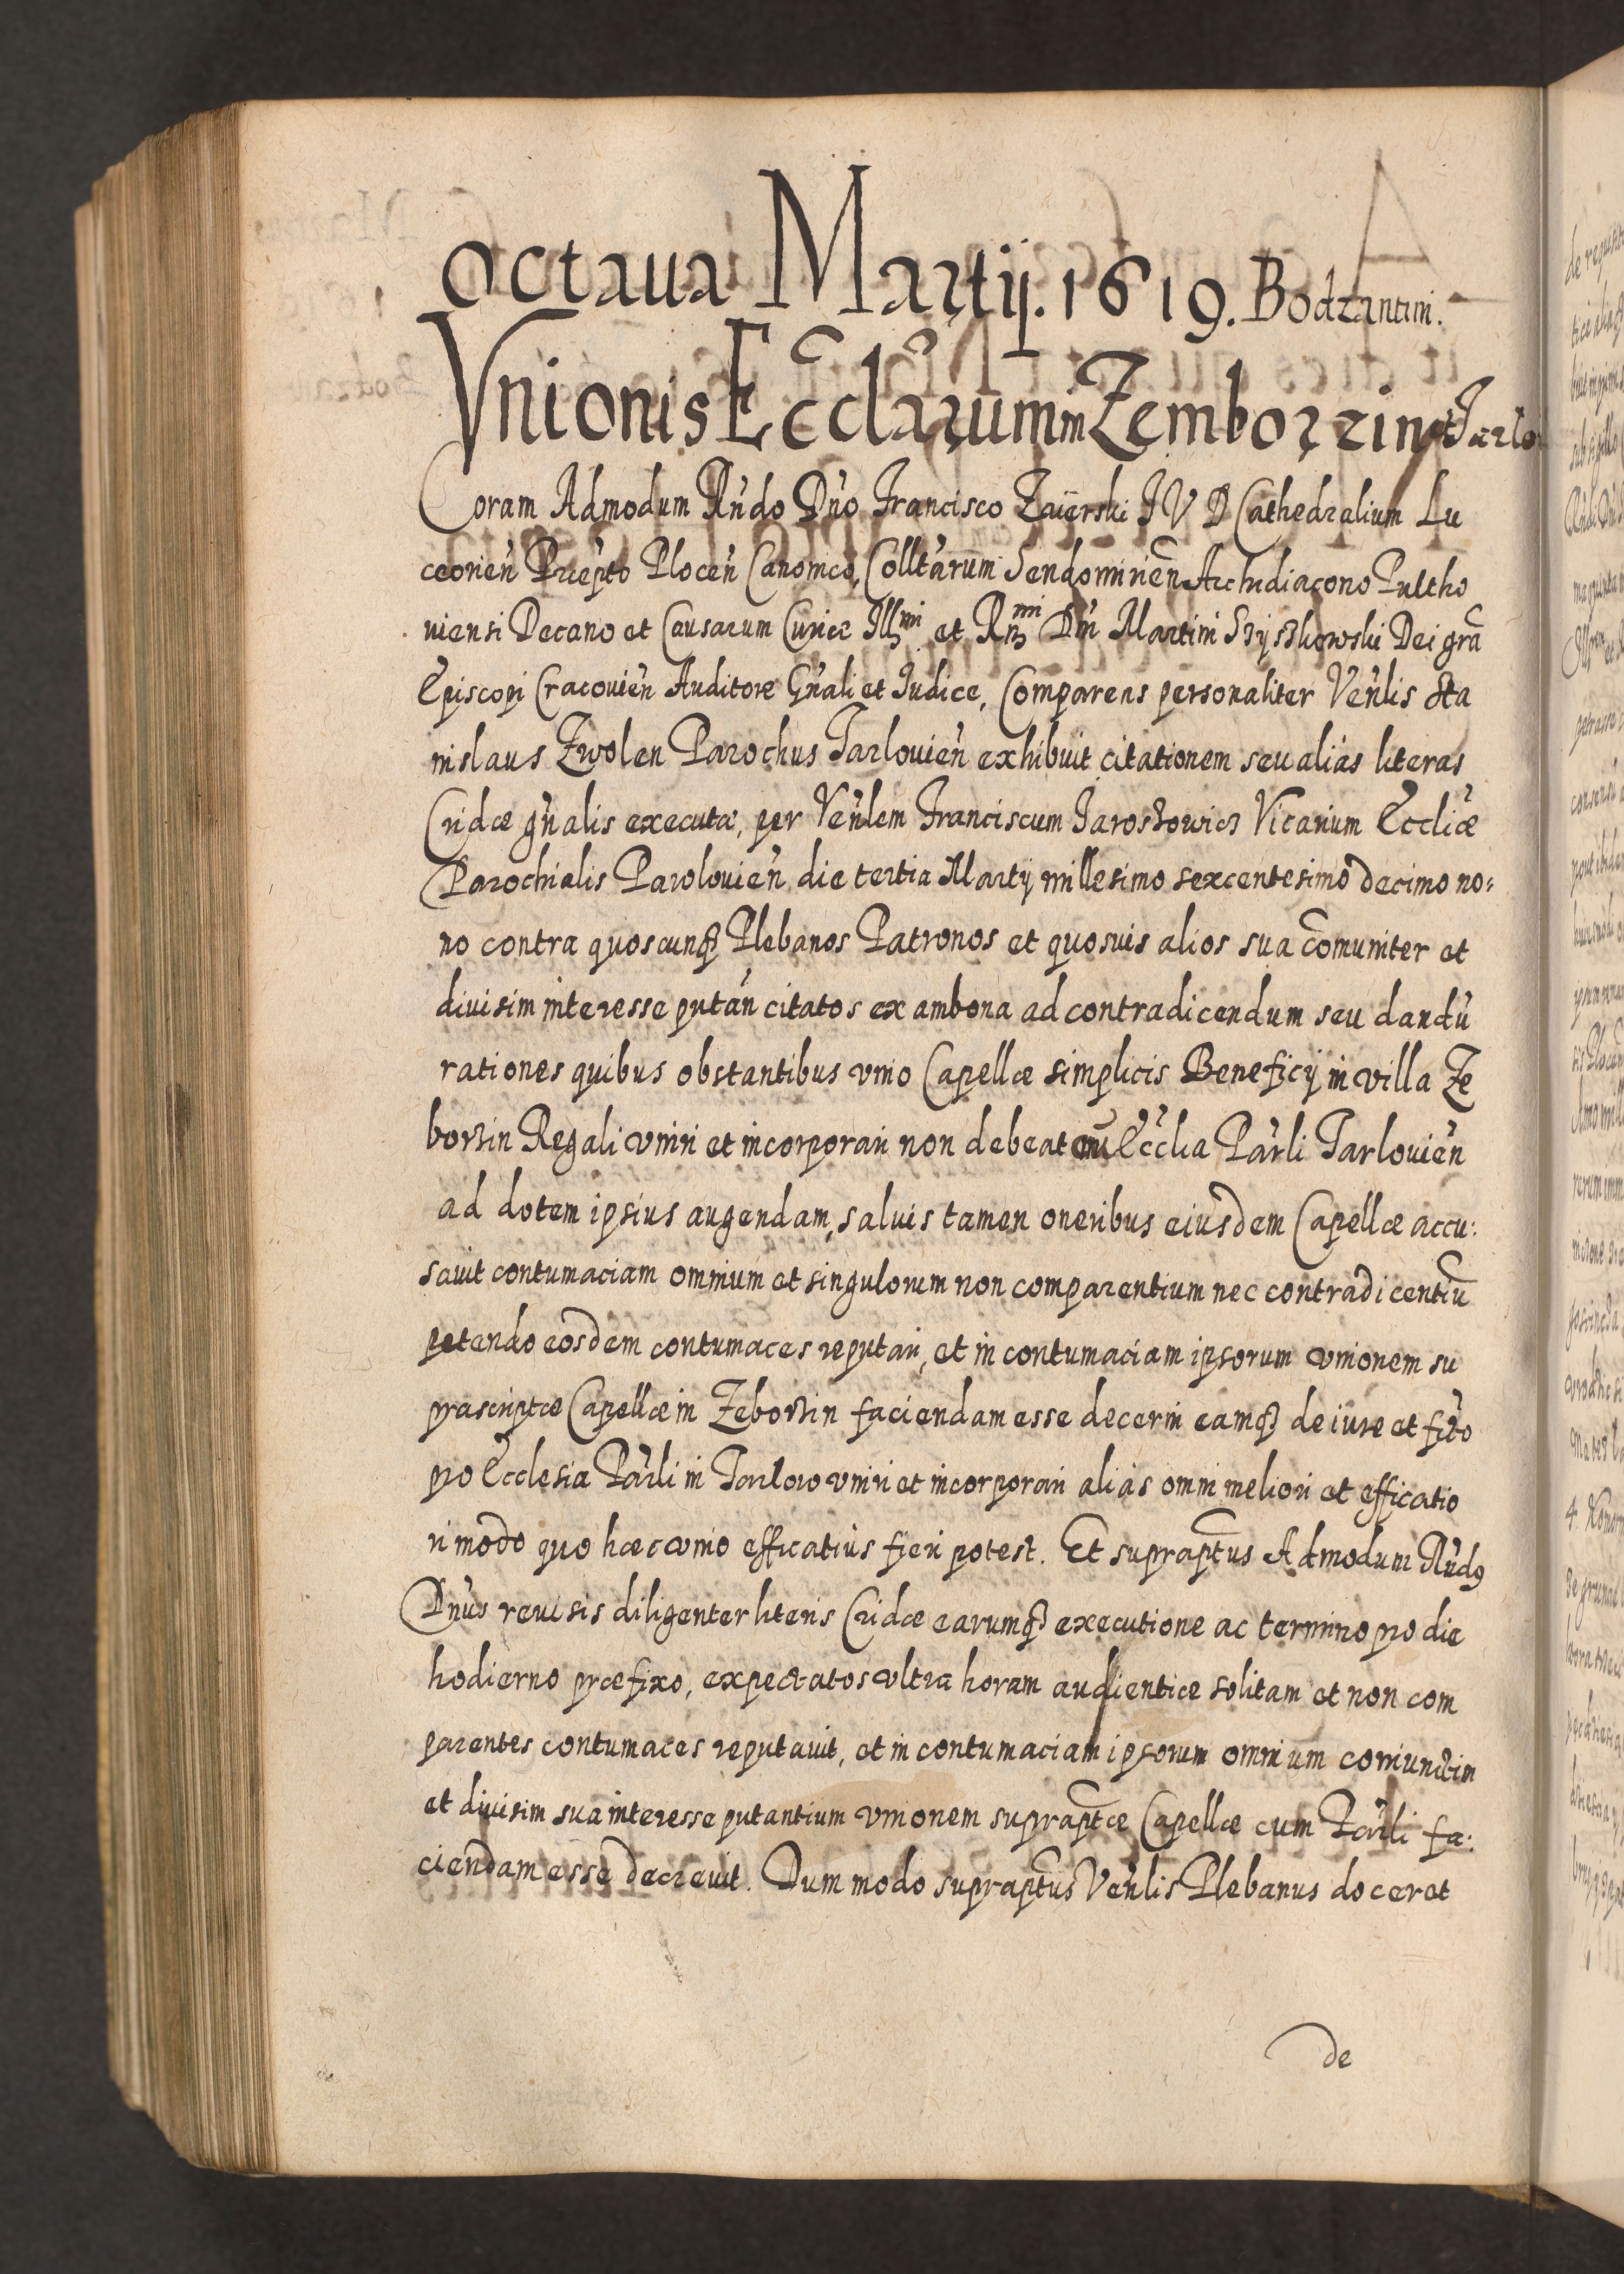 octaua Martij. 1619. Bodzantini.
Vnionis Eccl̃arum in Zemborzin et Tarlo
Coram Admodum Rńdo Dńo Francisco Zaiierski J V D Cathedralium Lu
ceorień Præpto Ploceń Canonico, Colltárum Sendomirień Archidiacono Pultho
uiensi Decano et Causarum Curiæ Illmi et Rmi Dńi Martini Szyszkowski Dei grã
Episcopi Cracouień Auditore Gńali et Judice, Comparens personaliter Veńlis Sta
nislaus Zwolen Parochus Tarlouień exhibuit citationem seu alias literas
Cridæ gńalis executæ, per Veńlem Franciscum Jaroszowicz Vicarium Eccliæ
Parochialis Parolouień die tertia Martij millesimo sexcentesimo decimo no:
no contra quoscunqȝ Plebanos Patronos et quosuis alios sua cõmuniter et
diuisim interesse putáń citatos ex ambona ad contradicendum seu dandũ
rationes quibus obstantibus vnio Capellæ simplicis Beneficij in villa Ze
borzin Regali vniri et incorporari non debeat cũ Ecclia Parli Tarlouień
ad dotem ipsius augendam, saluis tamen oneribus eiusdem Capellæ accu:
sauit contumaciam omnium et singulorum non comparentium nec contradicentiũ
petendo eosdem contumaces reputari, et in contumaciam ipsorum vnionem su
prascriptæ Capellæ in Zeborzin faciendam esse decerni eamqȝ de iure et fcto
pro Ecclesia Parli in Tarlow vniri et incorporari alias omni meliori et efficatio
ri modo quo hæc vnio efficatius fieri potest. Et supraptus Admodum Rńdus
Dńus reuisis diligenter literis Cridæ earumqȝ executione ac termino pro die
hodierno præfixo, expectatos vltra horam audientiæ solitam et non com
parentes contumaces reputauit, et in contumaciam ipsorum omnium coniunctim
et diuisim sua interesse putantium vnionem supraptæ Capellæ cum Parli fa:
ciendam esse decreuit. Dum modo supraptus Veńlis Plebanus doceret
de